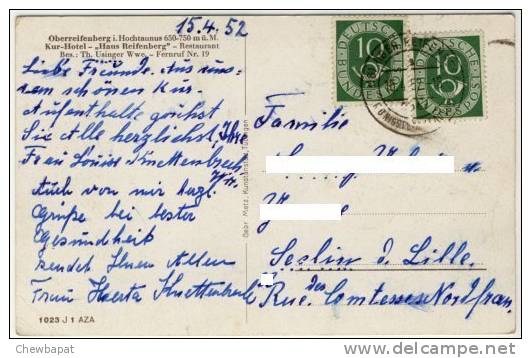 15.4.52
Oberreifenberg i. Hochtaunus 650-750 m ü. M.
Kur-Hotel – „Haus Reifenberg" – Restaurant
Bes.: Th. Usinger Wwe. – Fernruf Nr. 19
Liebe Freunde. Aus uns-
rem schönen Kur-
Aufenthalte grüßt
Sie Alle herzlichst Ihre
Frau Louise
Auch von mir
Grüße bei bester
Gesundheit
sendet Ihnen Allen
Frau Herta
1023 J 1 AZA
Gebr. Metz, Kunstanstalt, Tübingen
DEUTSCHE BUNDESPOST
10
10
Familie
Seslin d. Lille.
Rue. des Comtesses Nordfran.
© Chewbapat
http://www.delcampe.net